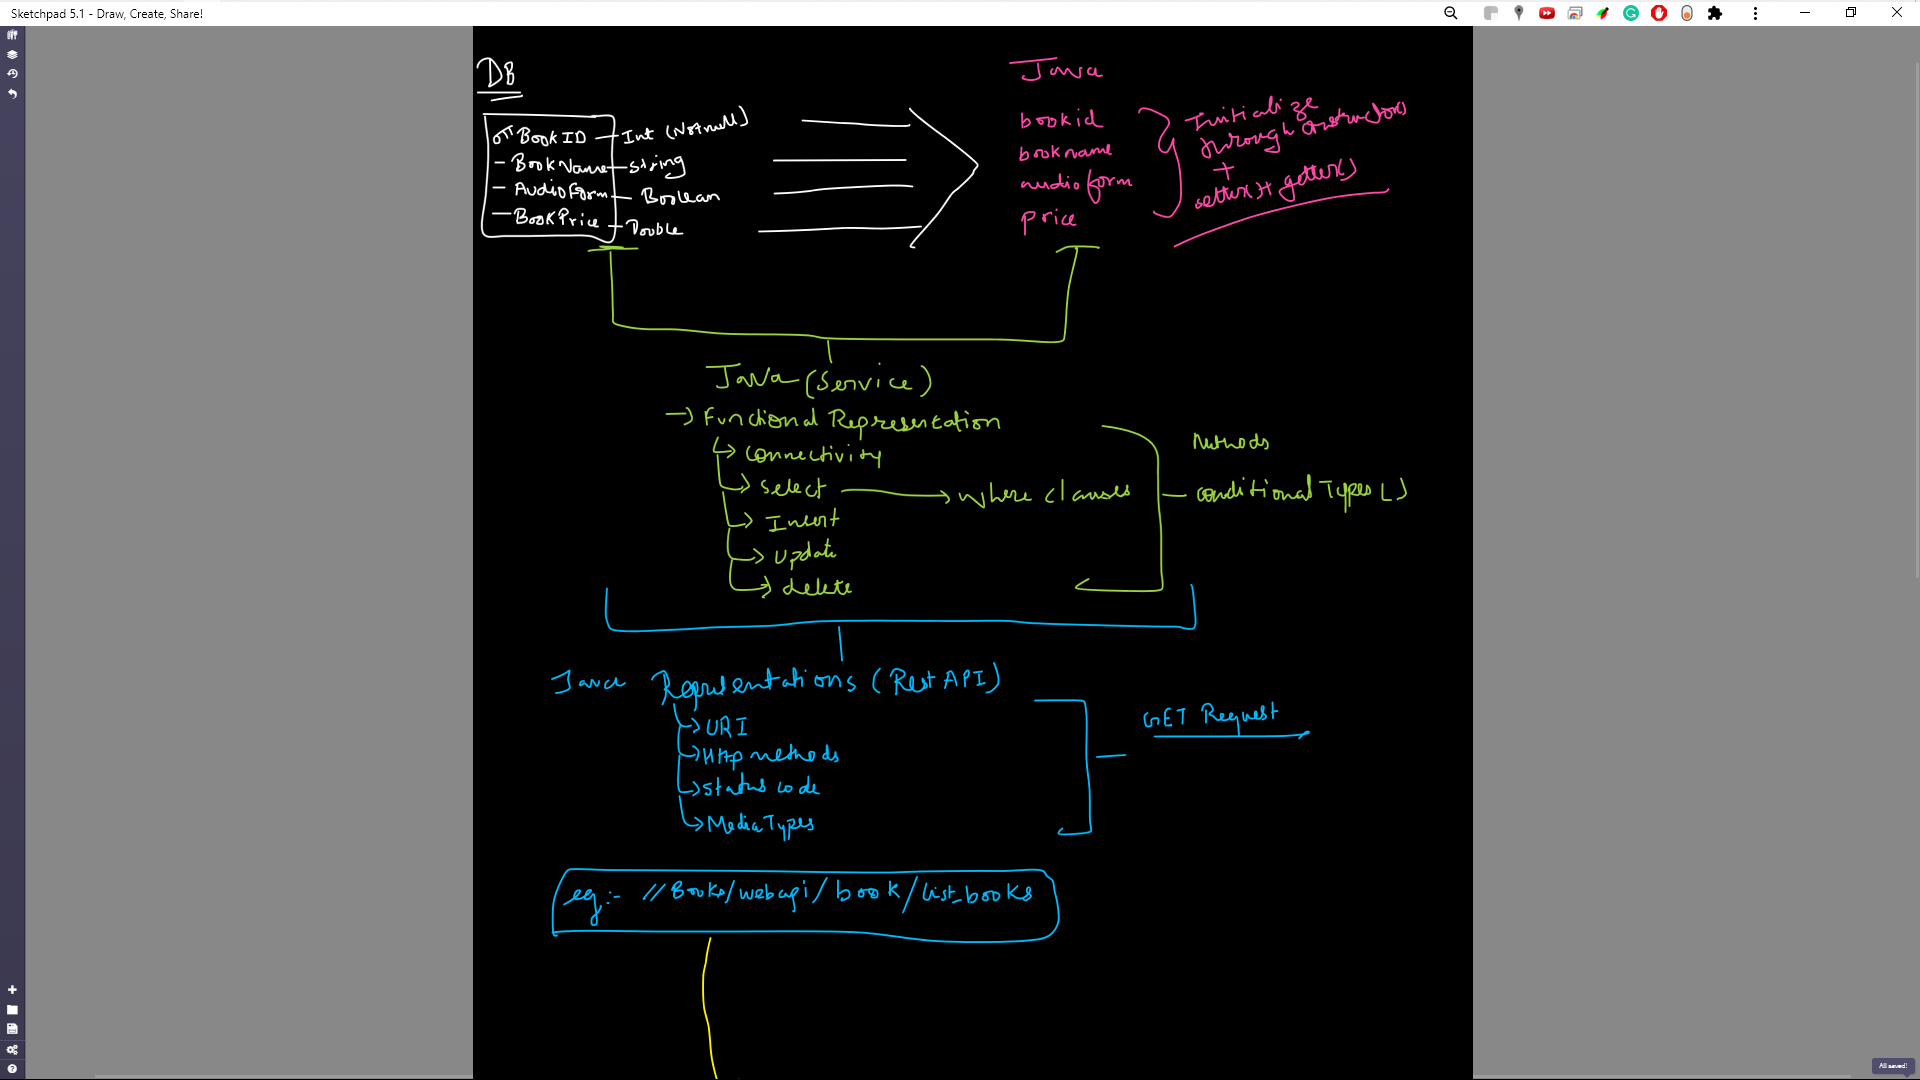 Sketchpad 5.1 - Draw, Create, Share!
DB
BookID - Int (Not null)
- BookName - String
- AudioForm - Boolean
- BookPrice - Double
Java
bookid
bookname
audioform
price
Initialize
through constructors
+
setter()+ getter()
Java (Service)
→ Functional Representation
→ connectivity
→ select → where clauses
→ Insert
→ update
→ delete
Methods
conditional Types
Java Representations (Rest API)
→ URI
→ Http methods
→ status code
→ MediaTypes
GET Request
eg:- //Books/webapi/book/list_books
All saved!